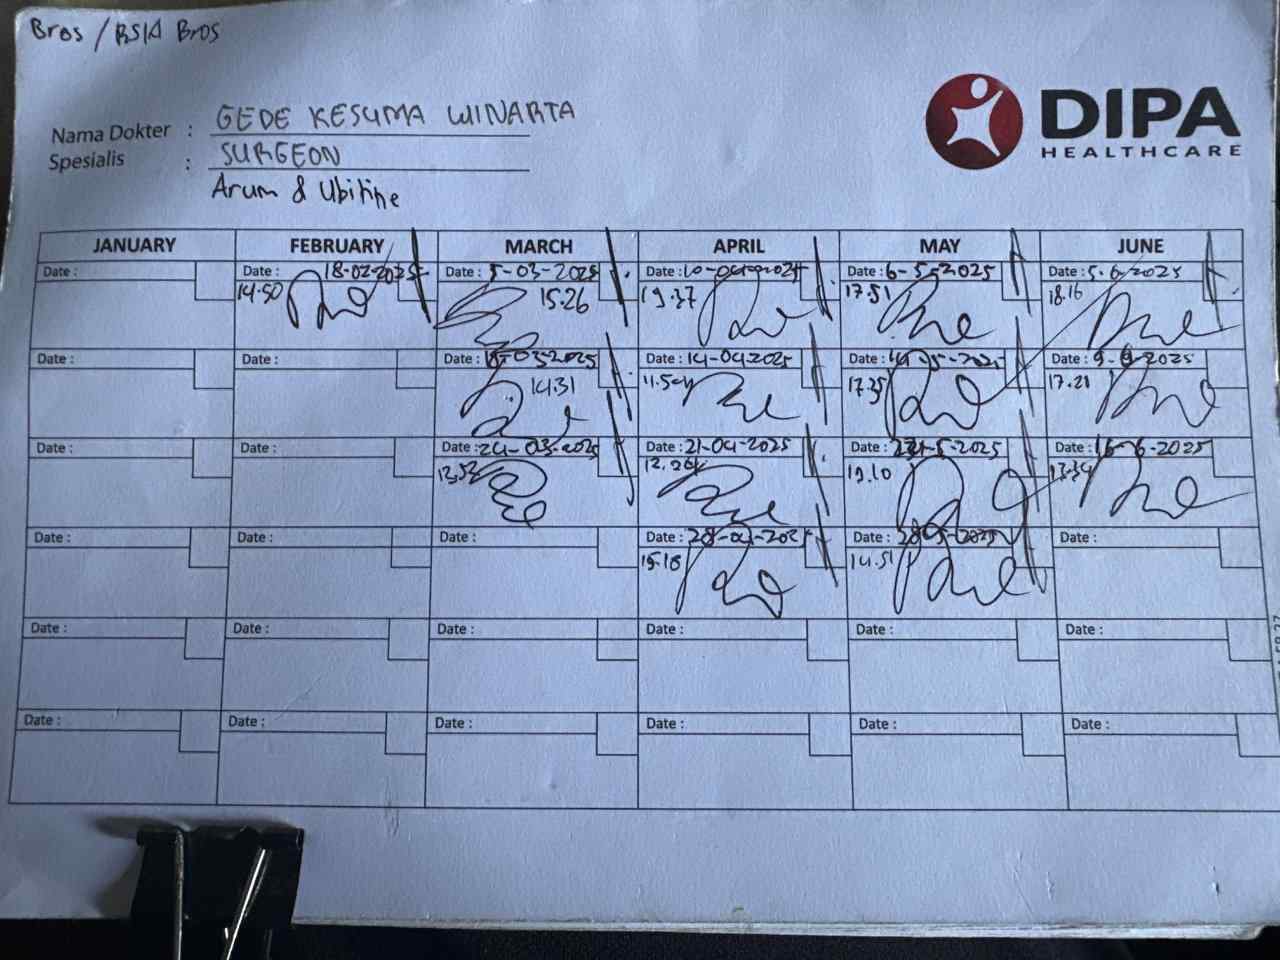 Bros / RSIA Bros
DIPA
HEALTHCARE
Nama Dokter : GEDE KESUMA WINARTA
Spesialis : SURGEON
Arum & Ubitine
JANUARY FEBRUARY MARCH APRIL MAY JUNE
Date : Date : 18-02-2025 Date : 5-03-2025 Date : 10-04-2025 Date : 6-5-2025 Date : 5.6-2025
14.50 15.26 19.37 17.51 18.16
Date : Date : Date : -03-2025 Date : 14-04-2025 Date : -5-2025 Date : 9-6-2025
14.31 11.54 17.35 17.21
Date : Date : Date : 24-03-2025 Date : 21-04-2025 Date : -5-2025 Date : 16-6-2025
13.52 12.26 19.10 17.34
Date : Date : Date : Date : 28-04-2025 Date : 28-5-2025 Date :
15.18 14.51
Date : Date : Date : Date : Date : Date :
Date : Date : Date : Date : Date : Date :